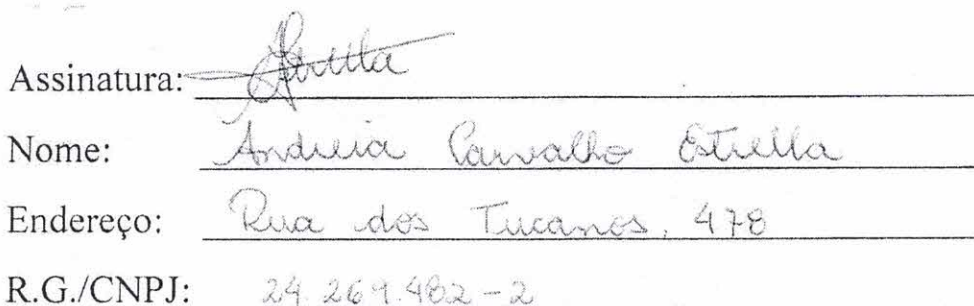 Assinatura: Estrella
Nome: Andreia Carvalho Estrella
Endereço: Rua dos Tucanos, 478
R.G./CNPJ: 24.269.482-2